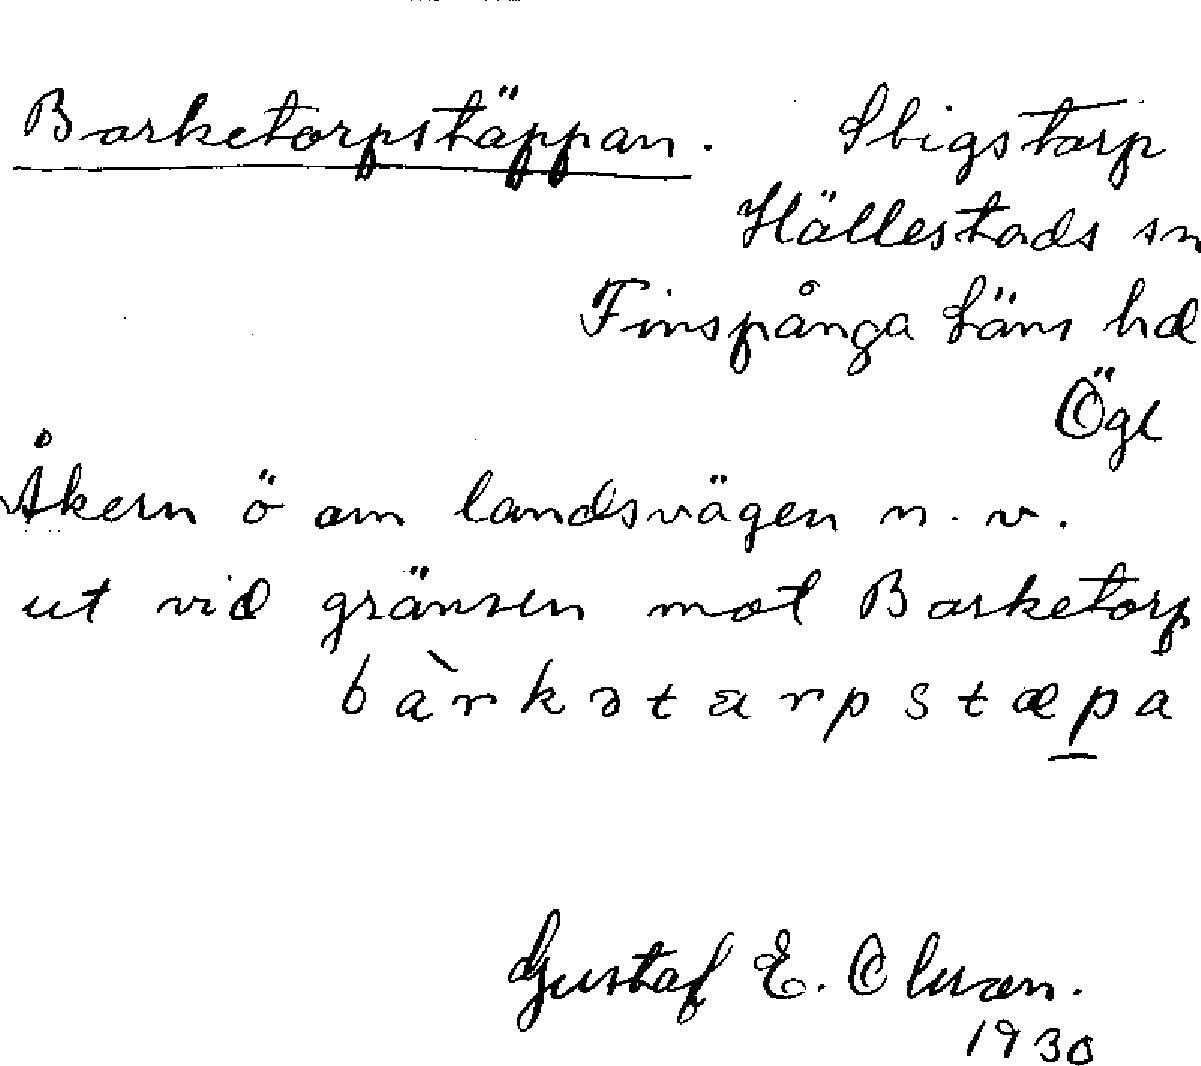 Barketorpstäppan. Stigstorp
Hällestads sn
Finspånga läns hd
Ögl
Åkern ö om landsvägen n. v.
ut vid gränsen mot Barketorp
bàrkətarpstæpa
Gustaf E. Olsson.
1930